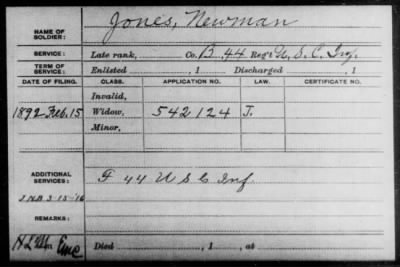 NAME OF SOLDIER: Jones, Newman
SERVICE: Late rank, Co. B. 44 Reg't U. S. C. Inf.
TERM OF SERVICE: Enlisted , 1 Discharged , 1
DATE OF FILING. CLASS. APPLICATION NO. LAW. CERTIFICATE NO.
Invalid,
1892 Feb. 15 Widow, 542124 J.
Minor,
ADDITIONAL SERVICES: F 44 U S C Inf.
REMARKS:
Died , 1 , at